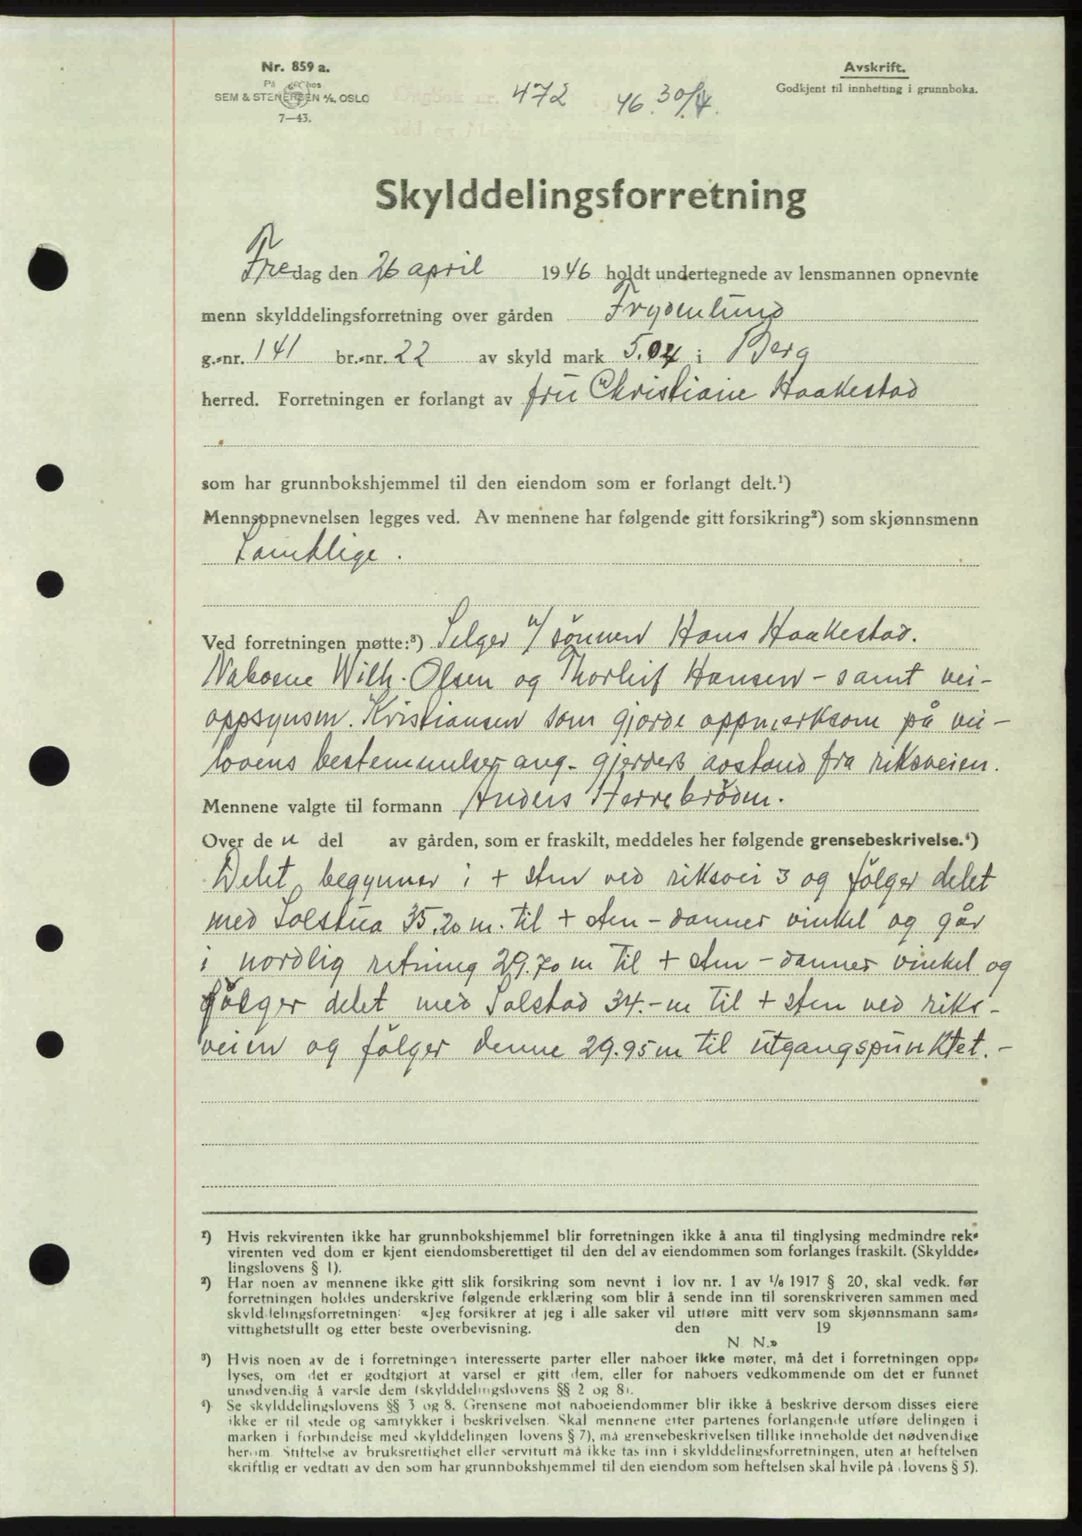 Nr. 859 a.
På hos
SEM & STENERSEN A/S, OSLO
7—43.
Avskrift.
Godkjent til innhefting i grunnboka.
Dagbok nr. 472 1946 30/4.
Skylddelingsforretning
Fredag den 26 april 1946 holdt undertegnede av lensmannen opnevnte
menn skylddelingsforretning over gården Frydenlund
g.-nr. 141 br.-nr. 22 av skyld mark 5.04 i Berg
herred. Forretningen er forlangt av fru Christiane Haakestad
som har grunnbokshjemmel til den eiendom som er forlangt delt.¹)
Mennsopnevnelsen legges ved. Av mennene har følgende gitt forsikring²) som skjønnsmenn
Samtlige.
Ved forretningen møtte:³) Selger v/ sönnen Hans Haakestad.
Naboene Wilh. Olsen og Thorleif Hansen - samt vei-
oppsynsm. Kristiansen som gjorde oppmerksom på vei-
lovens bestemmelser ang. gjerders avstand fra riksveien.
Mennene valgte til formann Anders Herrebröden.
Over de n del av gården, som er fraskilt, meddeles her følgende grensebeskrivelse.⁴)
Delet begynner i + sten ved riksvei 3 og fölger delet
med Solstua 35.20 m. til + sten - danner vinkel og går
i nordlig retning 29.70 m til + sten - danner vinkel og
fölger delet med Solstad 34.- m til + sten ved riks-
veien og fölger denne 29.95 m til utgangspunktet.-
¹) Hvis rekvirenten ikke har grunnbokshjemmel blir forretningen ikke å anta til tinglysing medmindre rek-
virenten ved dom er kjent eiendomsberettiget til den del av eiendommen som forlanges fraskilt. (Skyldde-
lingslovens § 1).
²) Har noen av mennene ikke gitt slik forsikring som nevnt i lov nr. 1 av 1/6 1917 § 20, skal vedk. før
forretningen holdes underskrive følgende erklæring som blir å sende inn til sorenskriveren sammen med
skylddelingsforretningen: «Jeg forsikrer at jeg i alle saker vil utføre mitt verv som skjønnsmann sam-
vittighetsfullt og etter beste overbevisning. den 19
N. N.»
³) Hvis noen av de i forretningen interesserte parter eller naboer ikke møter, må det i forretningen opp-
lyses, om det er godtgjort at varsel er gitt dem, eller for naboers vedkommende om det er funnet
unødvendig å varsle dem (skylddelingslovens §§ 2 og 8).
⁴) Se skylddelingslovens §§ 3 og 8. Grensene mot naboeiendommer blir ikke å beskrive dersom disses eiere
ikke er til stede og samtykker i beskrivelsen. Skal mennene etter partenes forlangende utføre delingen i
marken i forbindelse med skylddelingen (lovens § 7), må grensebeskrivelsen tillike inneholde det nødvendige
herom. Stiftelse av bruksrettighet eller servitutt må ikke tas inn i skylddelingsforretningen, uten at heftelsen
skriftlig er vedtatt av den som har grunnbokshjemmel til den eiendom som heftelsen skal hvile på (lovens § 5).